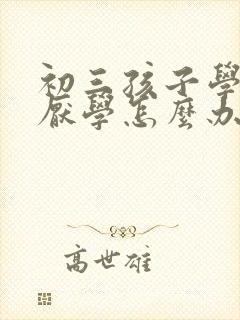 初三孩子學
厭學怎麼办
高世雄